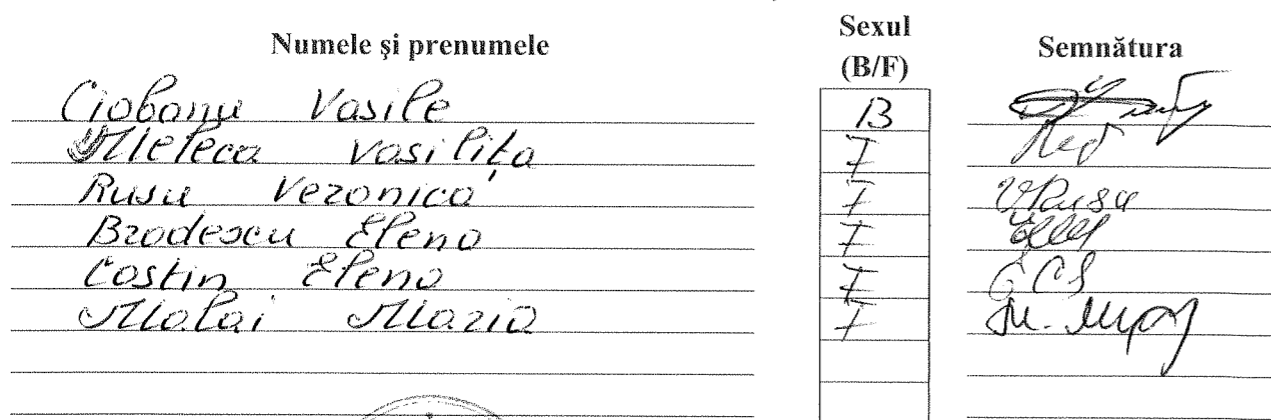 Numele şi prenumele Sexul (B/F) Semnătura
Ciobanu Vasile B
Meleca Vasilița F
Rusu Veronica F VRusu
Brodescu Elena F
Costin Elena F
Malai Maria F